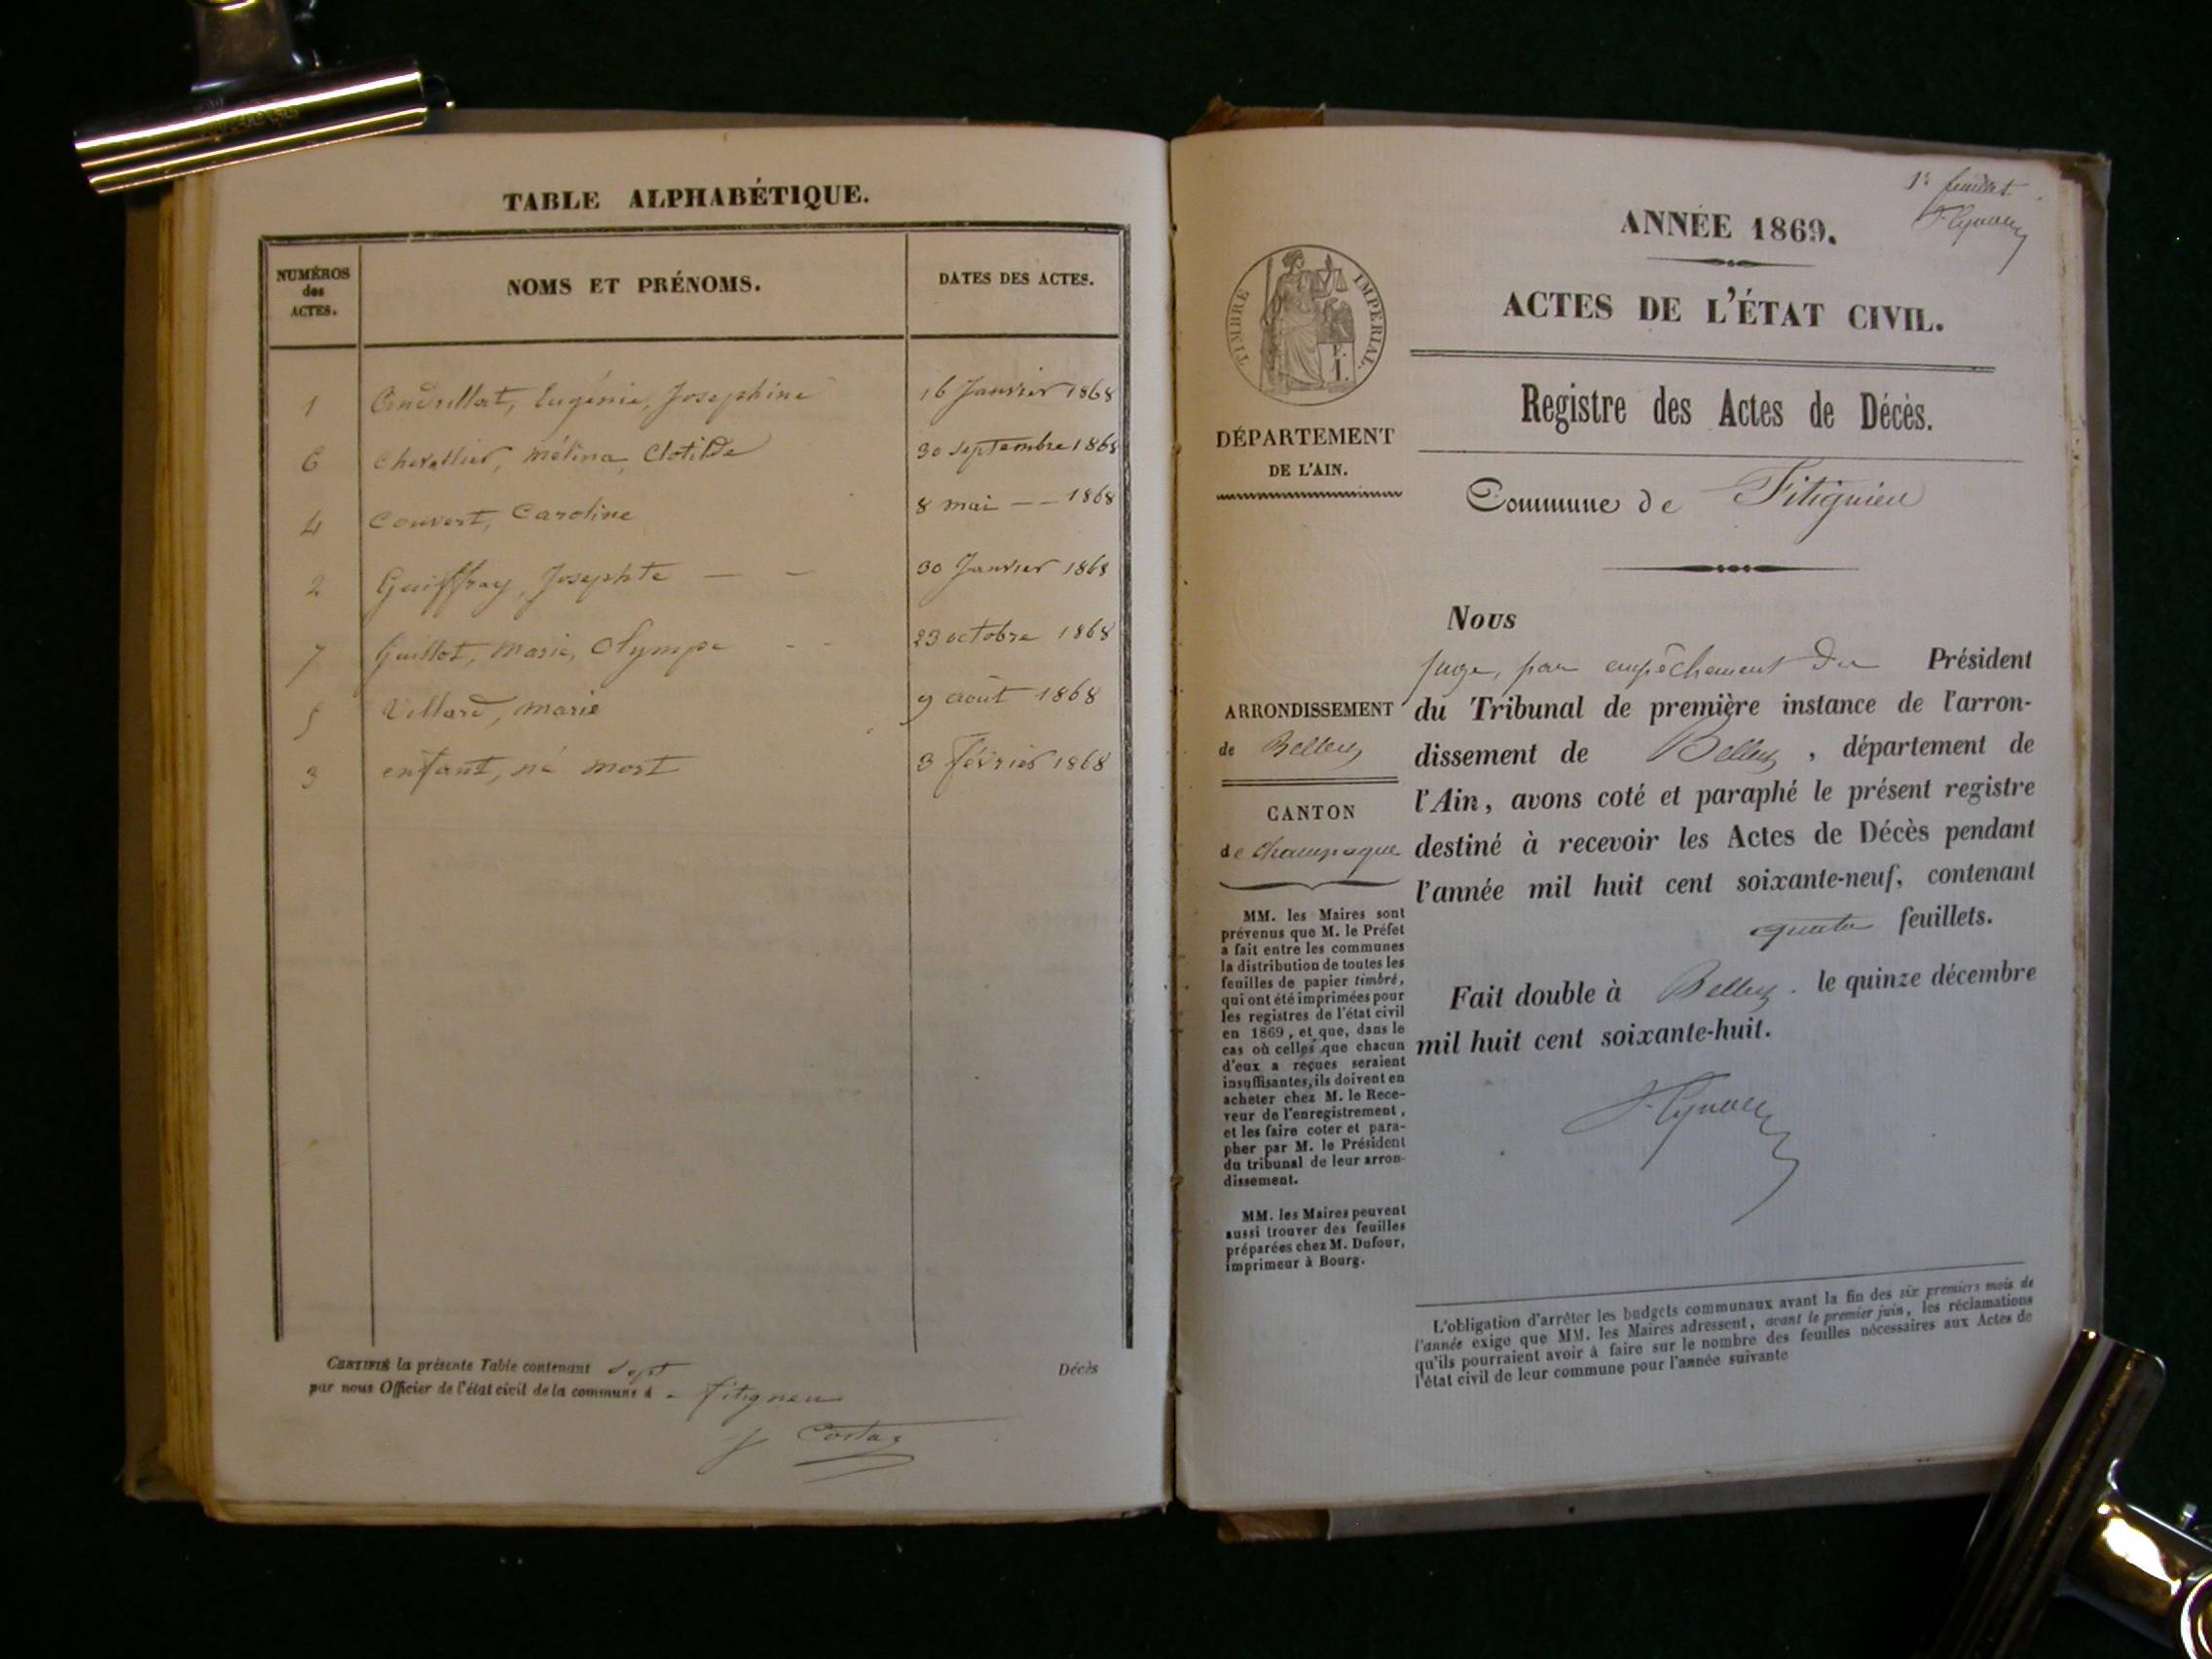 TABLE ALPHABÉTIQUE.
NUMÉROS
des
ACTES.
NOMS ET PRÉNOMS.
DATES DES ACTES.
1 Andrillat, Eugénie, Josephine 16 Janvier 1868
6 Chevallier, mélina, Clotilde 30 Septembre 1868
4 Couvert, Caroline 8 mai — — 1868
2 Guiffray, Josephte — — 30 Janvier 1868
7 Guillot, Marie, Olympe - - 23 octobre 1868
5 Villard, marie 9 août 1868
3 enfant, né mort 3 février 1868
CERTIFIÉ la présente Table contenant Sept Décès
par nous Officier de l'état civil de la commune d - fitigneu
J Costaz
1er feuillet
ANNÉE 1869.
ACTES DE L'ÉTAT CIVIL.
TIMBRE IMPÉRIAL.
Registre des Actes de Décès.
DÉPARTEMENT
DE L'AIN.
Commune de Fitignieu
Nous
juge, par empêchement du Président
du Tribunal de première instance de l'arron-
dissement de Belley, département de
l'Ain, avons coté et paraphé le présent registre
destiné à recevoir les Actes de Décès pendant
l'année mil huit cent soixante-neuf, contenant
quatre feuillets.
Fait double à Belley. le quinze décembre
mil huit cent soixante-huit.
ARRONDISSEMENT
de Belley
CANTON
de Champagne
MM. les Maires sont
prévenus que M. le Préfet
a fait entre les communes
la distribution de toutes les
feuilles de papier timbré,
qui ont été imprimées pour
les registres de l'état civil
en 1869, et que, dans le
cas où celles que chacun
d'eux a reçues seraient
insuffisantes, ils doivent en
acheter chez M. le Rece-
veur de l'enregistrement,
et les faire coter et para-
pher par M. le Président
du tribunal de leur arron-
dissement.
MM. les Maires peuvent
aussi trouver des feuilles
préparées chez M. Dufour,
imprimeur à Bourg.
L'obligation d'arrêter les budgets communaux avant la fin des six premiers mois de
l'année exige que MM. les Maires adressent, avant le premier juin, les réclamations
qu'ils pourraient avoir à faire sur le nombre des feuilles nécessaires aux Actes de
l'état civil de leur commune pour l'année suivante